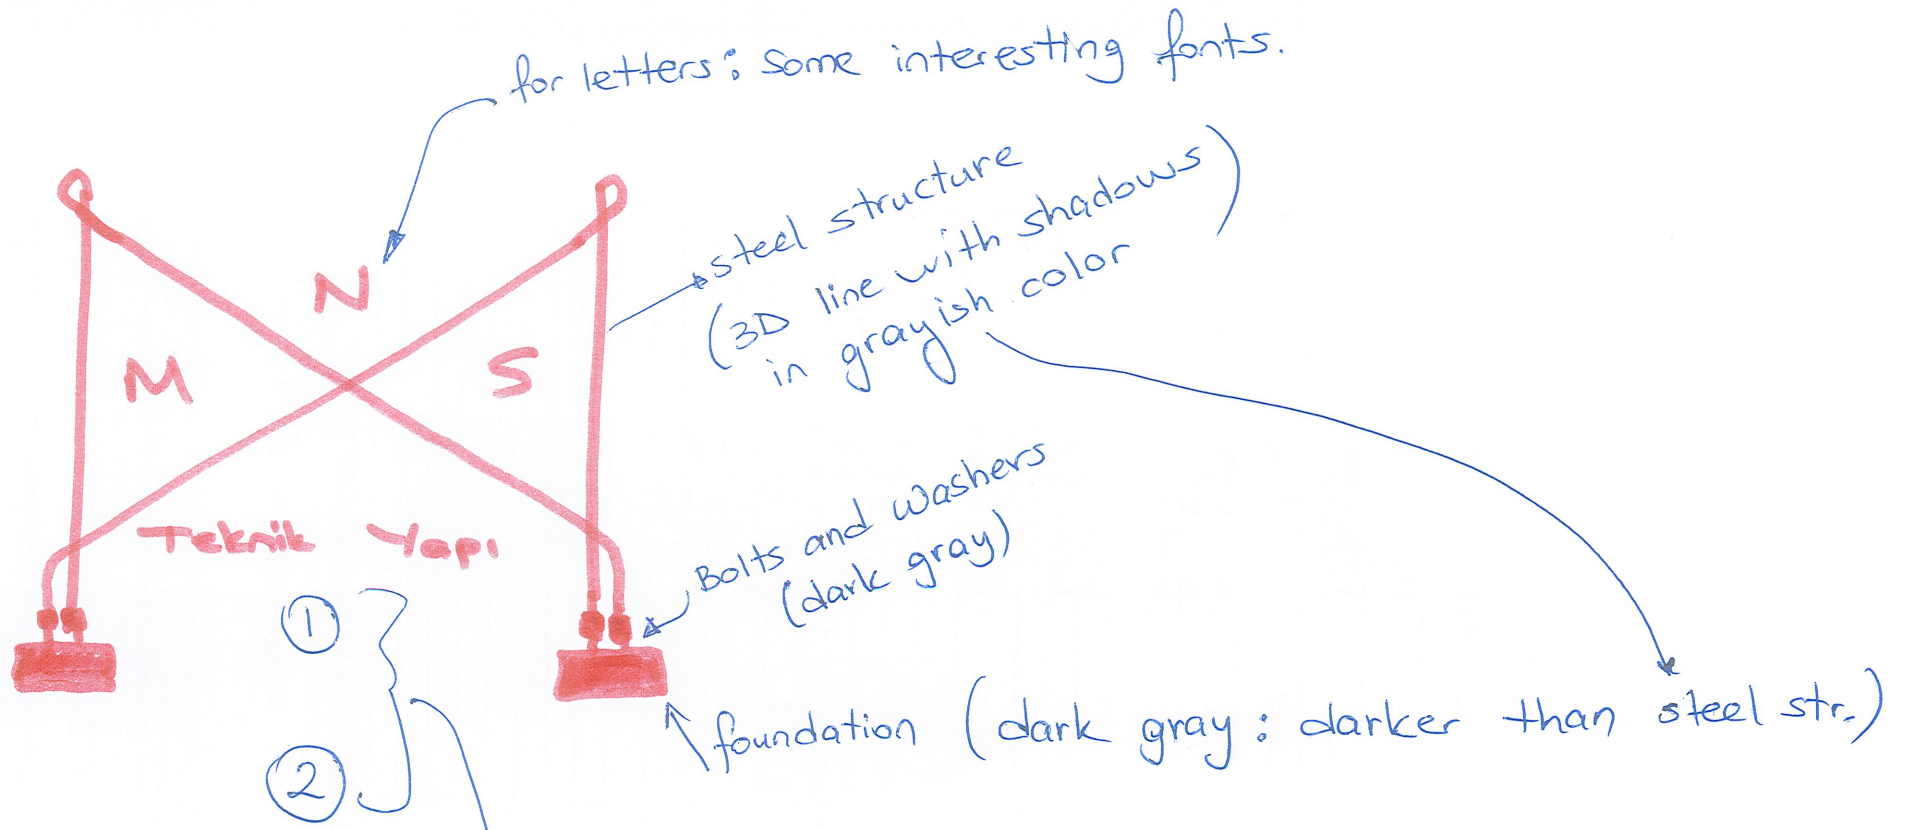 for letters: some interesting fonts.
N
M
S
steel structure
(3D line with shadows)
in grayish color
Teknik Yapı
Bolts and washers
(dark gray)
1
2
foundation (dark gray: darker than steel str.)